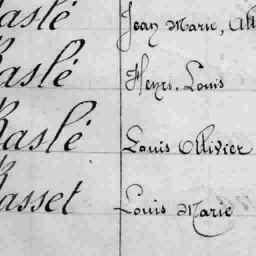 Raslé Jean Marie, All
Raslé Henri. Louis
Raslé Louis Ollivier
Rasset Louis Marie